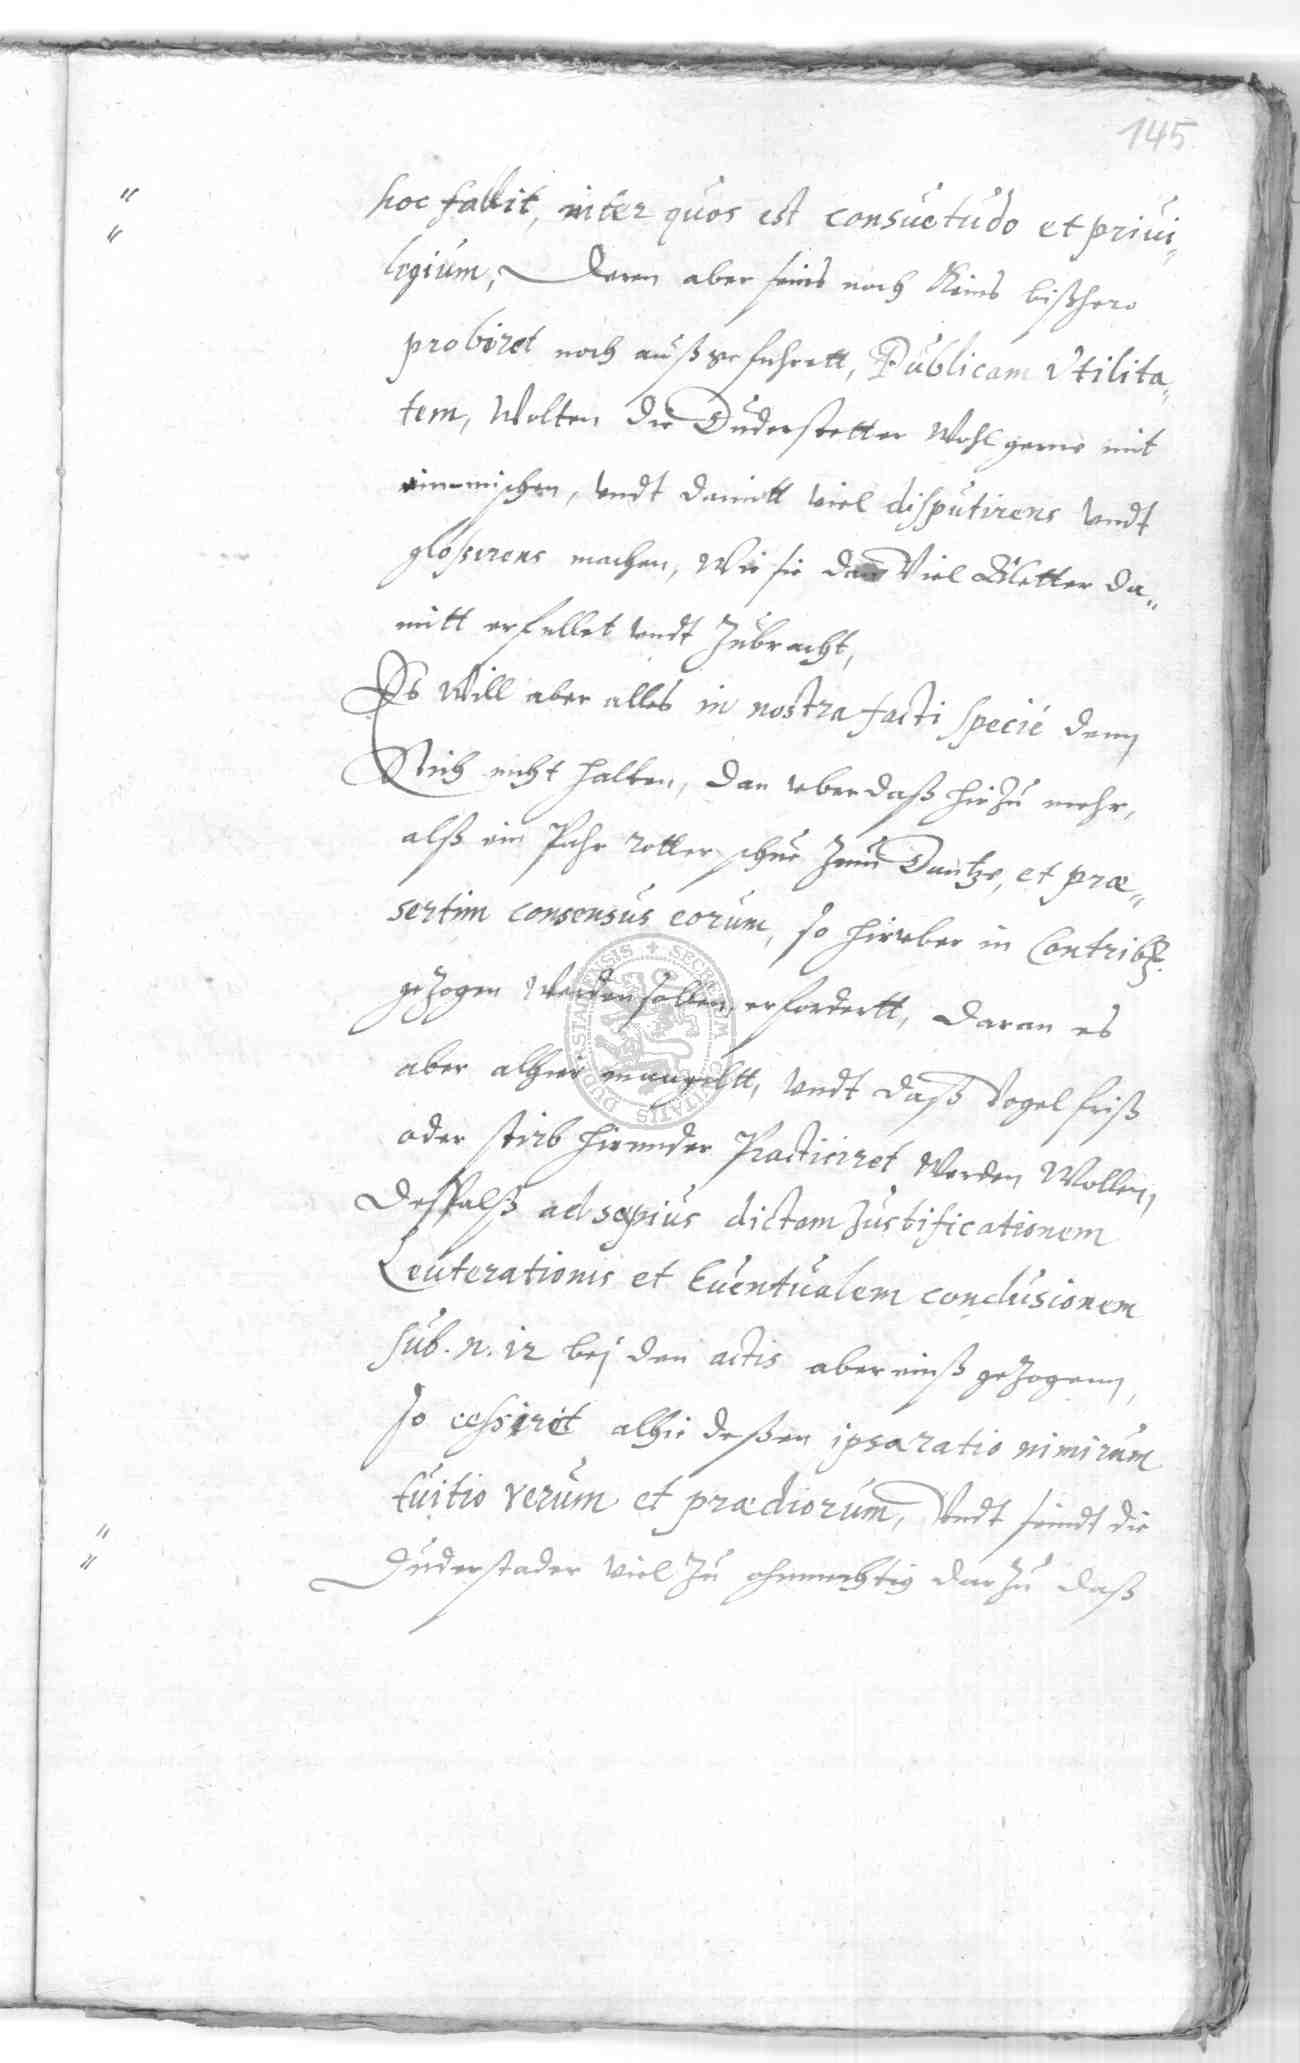 145
hoc fallit, inter quos est consuetudo et priui„
legium, Deren aber seins noch Keins bißhero
probiret noch außgefuhrett, Publicam Vtilita„
tem, Wolten die Duderstetter Wohl gerne mit
einmischen, vndt damitt viel disputirens vndt
gloßirens machen, Wie sie dan Viel Bletter da„
mitt erfullet vndt Zubracht,
Es Will aber alles in nostra facti specie denn
Stich nicht halten, dan vber daß hirZu mehr,
alß ein Pahr rotter schue Zum Dantze, et præ„
sertim consensus eorum, so hirvber in Contrib.
geZogen Werden sollen, erfordertt, daran es
aber alhier mangeltt, vndt daß Vogel friß
oder stirb hirunder Practiciret Werden Wollen,
Deßfalß ad sæpius dictam Justificationem
Leuterationis et Euentualem conclusionem
sub. n. 12 bej den actis abereinß geZogenn,
so cessiret alhie deßen ipsa ratio nimirum
tuitio rerum et prædiorum, Vndt seindt die
Duderstader viel Zu ohnmechtig darZu daß
SECRETUM CIVITATIS DUDERSTADENSIS